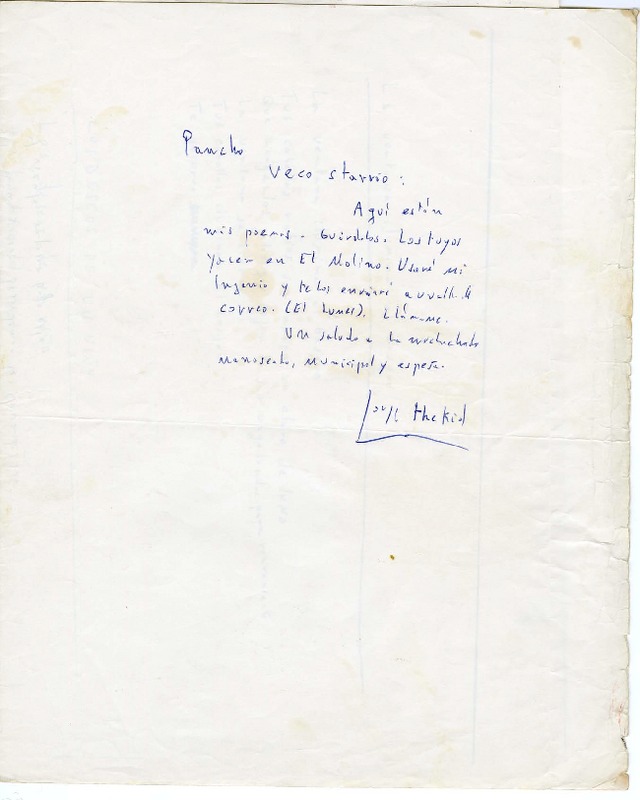 Pancho
veco starrio:
Aquí están
mis poemas. Guárdalos. Los tuyos
yacen en El Molino. Usaré mi
Ingenio y te los enviaré a vuelta de
correo. (El Lunes). Llámame.
Un saludo a la muchachada
manoseada, municipal y espesa.
Jorge the kid